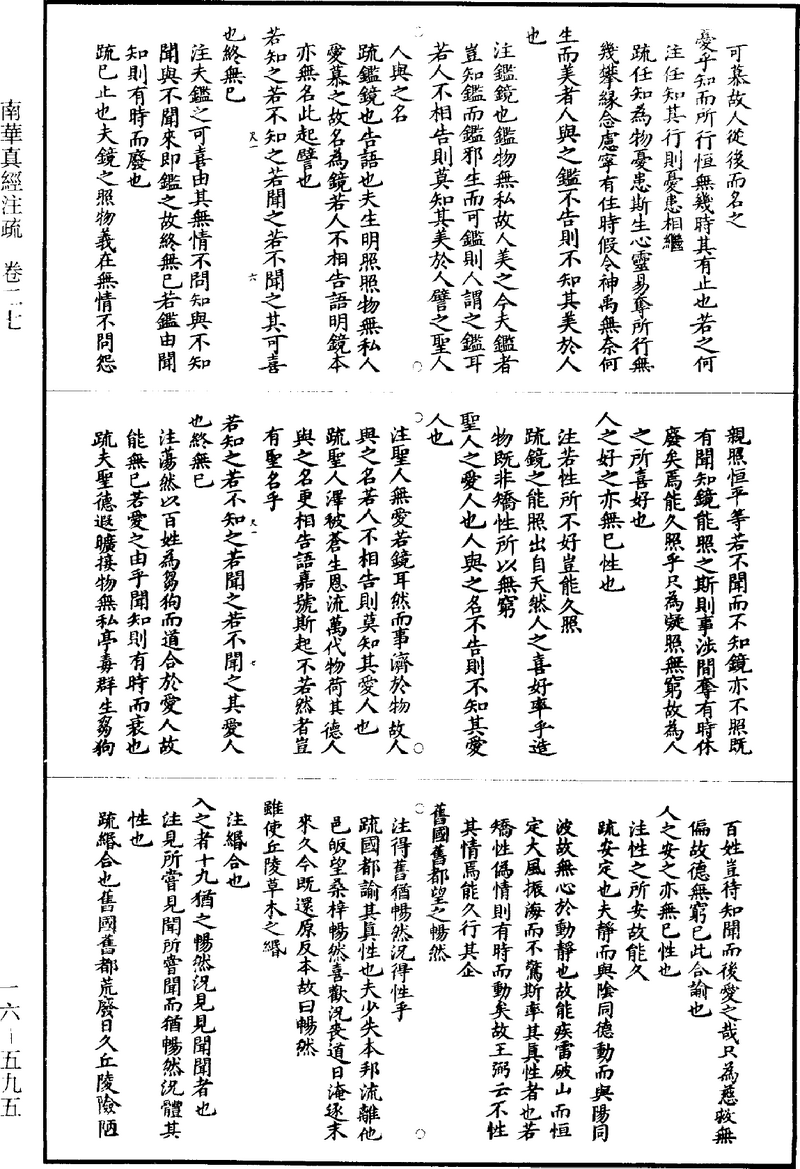 可慕故人從後而名之
憂乎知而所行恒無幾時其有止也若之何
注任知其行則憂患相繼
疏任知為物憂患斯生心靈易奪所行無
幾攀緣念慮寧有住時假令神禹無奈何
生而美者人與之鑑不告則不知其美於人
也
注鑑鏡也鑑物無私故人美之今夫鑑者
豈知鑑而鑑邪生而可鑑則人謂之鑑耳
若人不相告則莫知其美於人譬之聖人
人與之名
疏鑑鏡也告語也夫生明照照物無私人
愛慕之故名為鏡若人不相告語明鏡本
亦無名此起譬也
若知之若不知之若聞之若不聞之其可喜
也終無已
注夫鑑之可喜由其無情不問知與不知
聞與不聞來即鑑之故終無已若鑑由聞
知則有時而廢也
疏已止也夫鏡之照物義在無情不問怨
親照恒平等若不聞而不知鏡亦不照既
有聞知鏡能照之斯則事涉間奪有時休
廢矣焉能久照乎只為凝照無窮故為人
之所喜好也
人之好之亦無已性也
注若性所不好豈能久照
疏鏡之能照出自天然人之喜好率乎造
物既非矯性所以無窮
聖人之愛人也人與之名不告則不知其愛
人也
注聖人無愛若鏡耳然而事濟於物故人
與之名若人不相告則莫知其愛人也
疏聖人澤被蒼生恩流萬代物荷其德人
與之名更相告語嘉號斯起不若然者豈
有聖名乎
若知之若不知之若聞之若不聞之其愛人
也終無已
注蕩然以百姓為芻狗而道合於愛人故
能無已若愛之由乎聞知則有時而衰也
疏夫聖德遐曠接物無私亭毒群生芻狗
百姓豈待知聞而後愛之哉只為慈救無
偏故德無窮已此合諭也
人之安之亦無已性也
注性之所安故能久
疏安定也夫靜而與陰同德動而與陽同
波故無心於動靜也故能疾雷破山而恒
定大風振海而不驚斯率其真性者也若
矯性偽情則有時而動矣故王弼云不性
其情焉能久行其企
舊國舊都望之暢然
注得舊猶暢然況得性乎
疏國都諭其真性也夫少失本邦流離他
邑皈望桑梓暢然喜歡況喪道日淹逐末
來久今既還原反本故曰暢然
雖使丘陵草木之緡
注緡合也
入之者十九猶之暢然況見見聞聞者也
注見所嘗見聞所嘗聞而猶暢然況體其
性也
疏緡合也舊國舊都荒廢日久丘陵險陋
南華真經注疏 卷二七
一六－五九五